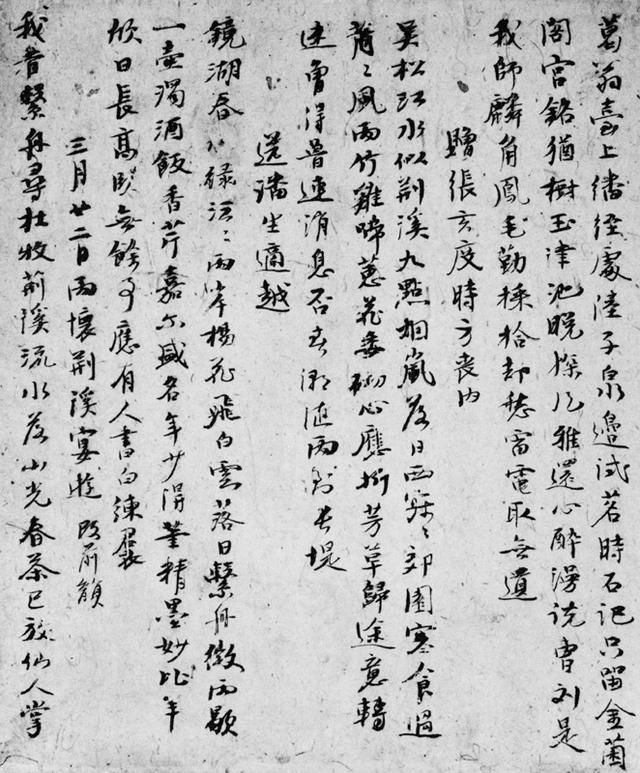 葛翁臺上繙經處陸子泉邊試茗時石記只留金菌
閣宮銘猶樹玉津池晚際風雅還心醉漫說曹劉是
我師麟角鳳毛勤採拾却愁雷電取無遺
贈張玄度時方喪內
吳松江水似荊溪九點烟嵐落日西寂〻郊園寒食過
蕭〻風雨竹雞啼蕙花委砌心應折芳草歸途意轉
迷曾得魯連消息否春潮雨到長堤
送潘生適越
鏡湖春水綠沄〻兩岸楊花飛白雲落日繫舟微雨歇
一壺濁酒飯香芹嘉尔盛名年少得筆精墨妙比年
欣日長高臥無餘事應有人書白練裙
三月廿二日雨懷荊溪宴遊 改前韻
我昔繫舟尋杜牧荊溪流水山光春茶已放仙人掌